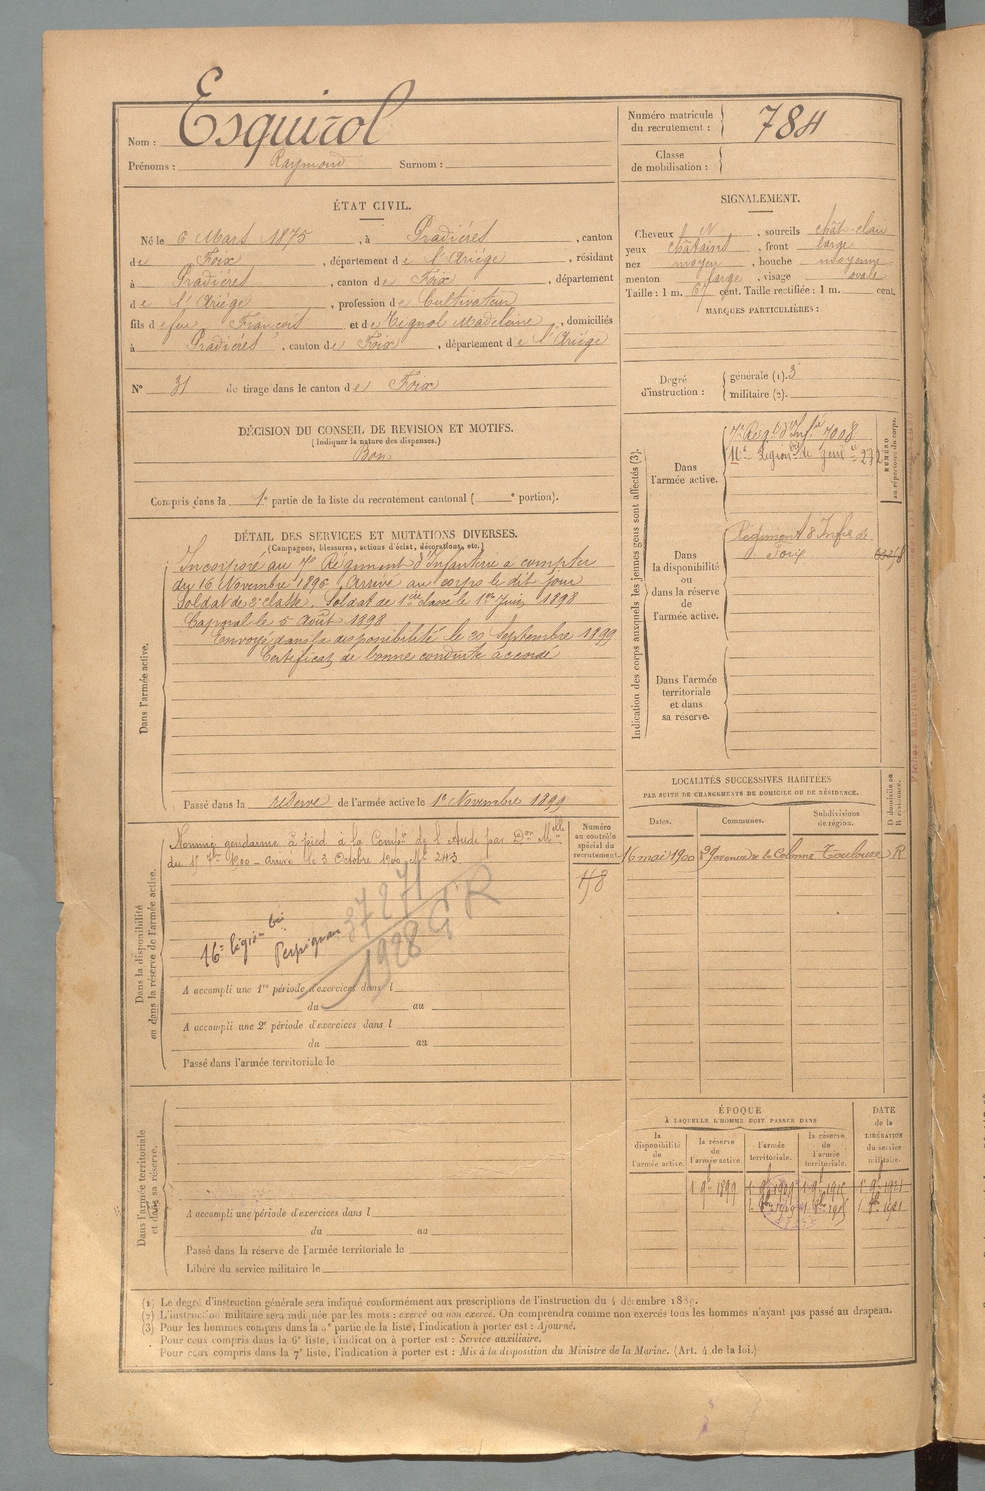 Nom : Esquirol
Prénoms : Raymond Surnom :
Numéro matricule du recrutement : 784
Classe de mobilisation :
ÉTAT CIVIL.
Né le 6 Mars 1875, à Pradières, canton
de Foix, département de l'Ariège, résidant
à Pradières, canton de Foix, département
de l'Ariège, profession de Cultivateur
fils de feu François et de Tignol Madelaine, domiciliés
à Pradières, canton de Foix, département de l'Ariège
N° 31 de tirage dans le canton de Foix
SIGNALEMENT.
Cheveux N, sourcils chât-clair
yeux châtains, front large
nez moyen, bouche moyenne
menton large, visage ovale
Taille : 1 m. 67 cent. Taille rectifiée : 1 m. cent.
MARQUES PARTICULIÈRES :
Degré d'instruction : générale (1). 3
militaire (2).
DÉCISION DU CONSEIL DE REVISION ET MOTIFS.
(Indiquer la nature des dispenses.)
Bon
Compris dans la 1e partie de la liste du recrutement cantonal ( e portion).
DÉTAIL DES SERVICES ET MUTATIONS DIVERSES.
(Campagnes, blessures, actions d'éclat, décorations, etc.)
Dans l'armée active.
Incorporé au 7e Régiment d'Infanterie à compter
du 16 Novembre 1896, Arrivé au corps le dit jour
Soldat de 2e classe. Soldat de 1ere classe le 1er Juin 1898
Caporal le 5 Août 1898
Envoyé dans la disponibilité le 20 Septembre 1899
Certificat de bonne conduite accordé
Passé dans la réserve de l'armée active le 1er Novembre 1899
Indication des corps auxquels les jeunes gens sont affectés (3).
NUMÉRO au répertoire du corps.
Dans l'armée active.
7e Régt d'Infie 7008
Légion de gend
Dans la disponibilité ou dans la réserve de l'armée active.
Régiment d'Infie de
Foix
Dans l'armée territoriale et dans sa réserve.
Dans la disponibilité ou dans la réserve de l'armée active.
Nommé gendarme à pied à la Compie de l'Aude par Don Melle
du 15 7re 1900 - arrivé le 3 Octobre 1900 Nle 243
16e légion bis
Perpignan
37271
1928 GR
Numéro au contrôle spécial du recrutement.
48
A accompli une 1re période d'exercices dans l
du au
A accompli une 2e période d'exercices dans l
du au
Passé dans l'armée territoriale le
LOCALITÉS SUCCESSIVES HABITÉES
PAR SUITE DE CHANGEMENTS DE DOMICILE OU DE RÉSIDENCE.
D domicile ou R résidence.
Dates. Communes. Subdivisions de région.
16 mai 1900 avenue de la Colonne Toulouse R
Dans l'armée territoriale et dans sa réserve.
A accompli une période d'exercices dans l
du au
Passé dans la réserve de l'armée territoriale le
Libéré du service militaire le
ÉPOQUE
À LAQUELLE L'HOMME DOIT PASSER DANS
la disponibilité de l'armée active.
la réserve de l'armée active.
l'armée territoriale.
la réserve de l'armée territoriale.
DATE de la LIBÉRATION du service militaire.
(1) Le degré d'instruction générale sera indiqué conformément aux prescriptions de l'instruction du 4 décembre 1889.
(2) L'instruction militaire sera indiquée par les mots : exercé ou non exercé. On comprendra comme non exercés tous les hommes n'ayant pas passé au drapeau.
(3) Pour les hommes compris dans la 5e partie de la liste, l'indication à porter est : Ajourné.
Pour ceux compris dans la 6e liste, l'indication à porter est : Service auxiliaire.
Pour ceux compris dans la 7e liste, l'indication à porter est : Mis à la disposition du Ministre de la Marine. (Art. 4 de la loi.)